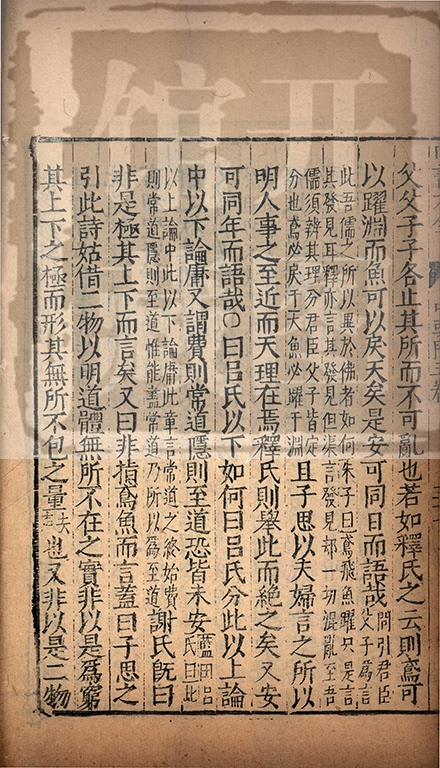 父父子子各止其所而不可亂也若如釋氏之云則鳶可
以躍淵而魚可以戾天矣是安可同日而語哉
問引君臣
父子爲言
此吾儒之所以異於佛者如何朱子曰鳶飛魚躍只是言
其發見耳釋亦言其發見但渠言發見却一切混亂至吾
儒須辨其理分君臣父子皆定
分也鳶必戾于天魚必躍于淵
且子思以夫婦言之所以
明人事之至近而天理在焉釋氏則舉此而絕之矣又安
可同年而語哉○曰呂氏以下如何曰呂氏分此以上論
中以下論庸又謂費則常道隱則至道恐皆未安
藍田呂
氏曰此
以上論中此以下論庸此章言常道之終始費
則常道隱則至道惟能盡常道乃所以爲至道
謝氏旣曰
非是極其上下而言矣又曰非指鳶魚而言蓋曰子思之
引此詩姑借二物以明道體無所不在之實非以是爲窮
其上下之極而形其無所不包之量
也又非以是二物